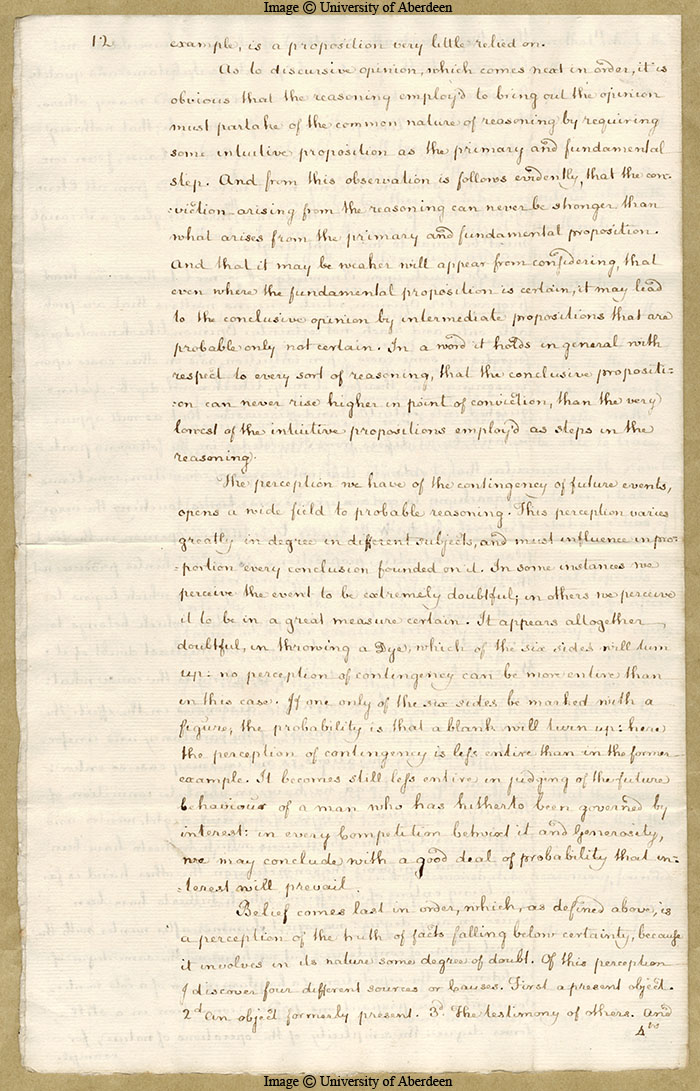 Image © University of Aberdeen
12
example, is a proposition very little relied on.
As to discursive opinion, which comes next in order, it is
obvious that the reasoning employ'd to bring out the opinion
must partake of the common nature of reasoning by requiring
some intuitive proposition as the primary and fundamental
step. And from this observation is follows evidently, that the con-
:viction arising from the reasoning can never be stronger than
what arises from the primary and fundamental proposition.
And that it may be weaker will appear from considering, that
even where the fundamental proposition is certain, it may lead
to the conclusive opinion by intermediate propositions that are
probable only not certain. In a word it holds in general with
respect to every sort of reasoning, that the conclusive propositi:
:on can never rise higher in point of conviction, than the very
lowest of the intuitive propositions employ'd as steps in the
reasoning.
The perception we have of the contingency of future events,
opens a wide field to probable reasoning. This perception varies
greatly in degree in different subjects, and must influence in pro:
:portion every conclusion founded on it. In some instances we
perceive the event to be extremely doubtful; in others we perceive
it to be in a great measure certain. It appears altogether
doubtful, in throwing a Dye, which of the six sides will turn
up: no perception of contingency can be more entire than
in this case. If one only of the six sides be marked with a
figure, the probability is that a blank will turn up: here
the perception of contingency is less entire than in the former
example. It becomes still less entire in judging of the future
behaviour of a man who has hitherto been governed by
interest: in every Competition betwixt it and Generosity,
we may conclude with a good deal of probability that in:
:terest will prevail.
Belief comes last in order, which, as defined above, is
a perception of the truth of facts falling below certainty, because
it involves in its nature some degree of doubt. Of this perception
I discover four different sources or Causes. First a present object.
2d An object formerly present. 3d. The testimony of others. And
4to
Image © University of Aberdeen